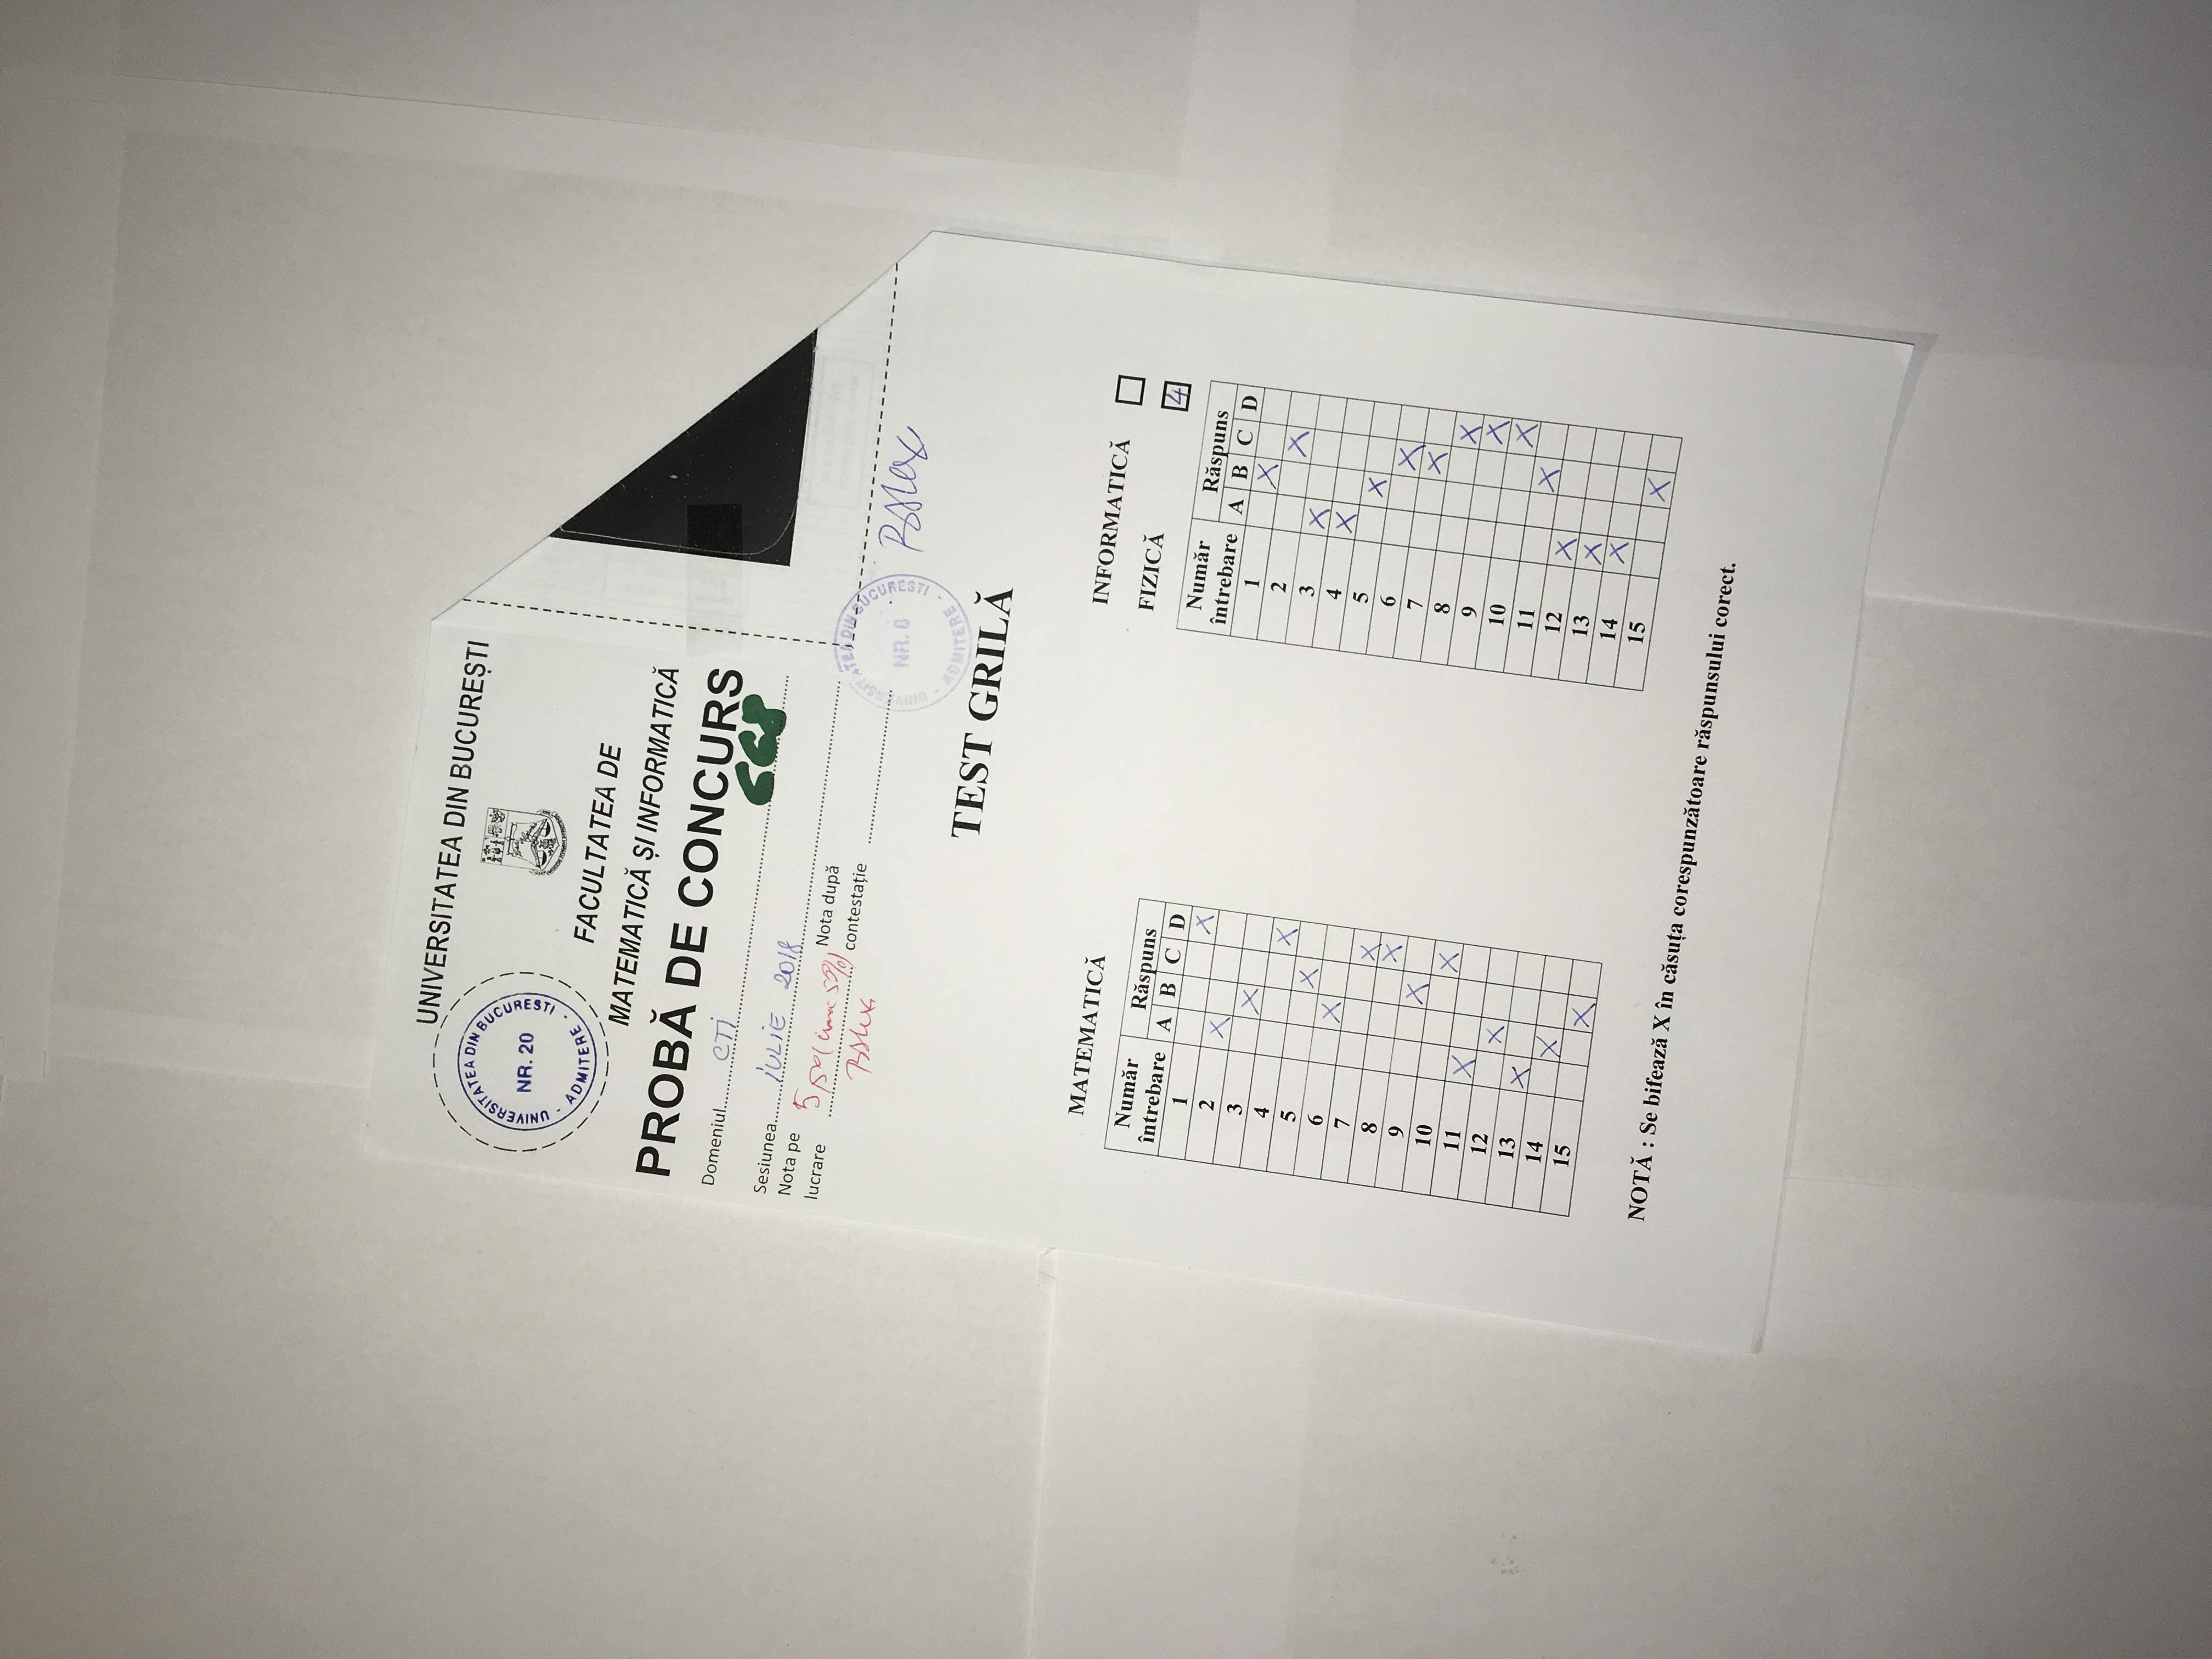 UNIVERSITATEA DIN BUCUREȘTI
UNIVERSITATEA DIN BUCURESTI
NR. 20
- ADMITERE -
FACULTATEA DE
MATEMATICĂ ȘI INFORMATICĂ
PROBĂ DE CONCURS
Domeniul CTI
668
Sesiunea IULIE 2018
Nota pe lucrare 5,50 (cinci 50%)
Nota după contestație
UNIVERSITATEA DIN BUCURESTI
NR. 8
- ADMITERE -
TEST GRILĂ
MATEMATICĂ
Număr întrebare Răspuns
A B C D
1 X
2 X
3 X
4 X
5 X
6 X
7 X
8 X
9 X
10 X
11 X
12 X
13 X
14 X
15 X
INFORMATICĂ
FIZICĂ 4
Număr întrebare Răspuns
A B C D
1 X
2 X
3 X
4 X
5 X
6 X
7 X
8 X
9 X
10 X
11 X
12 X
13 X
14 X
15 X
NOTĂ : Se bifează X în căsuța corespunzătoare răspunsului corect.